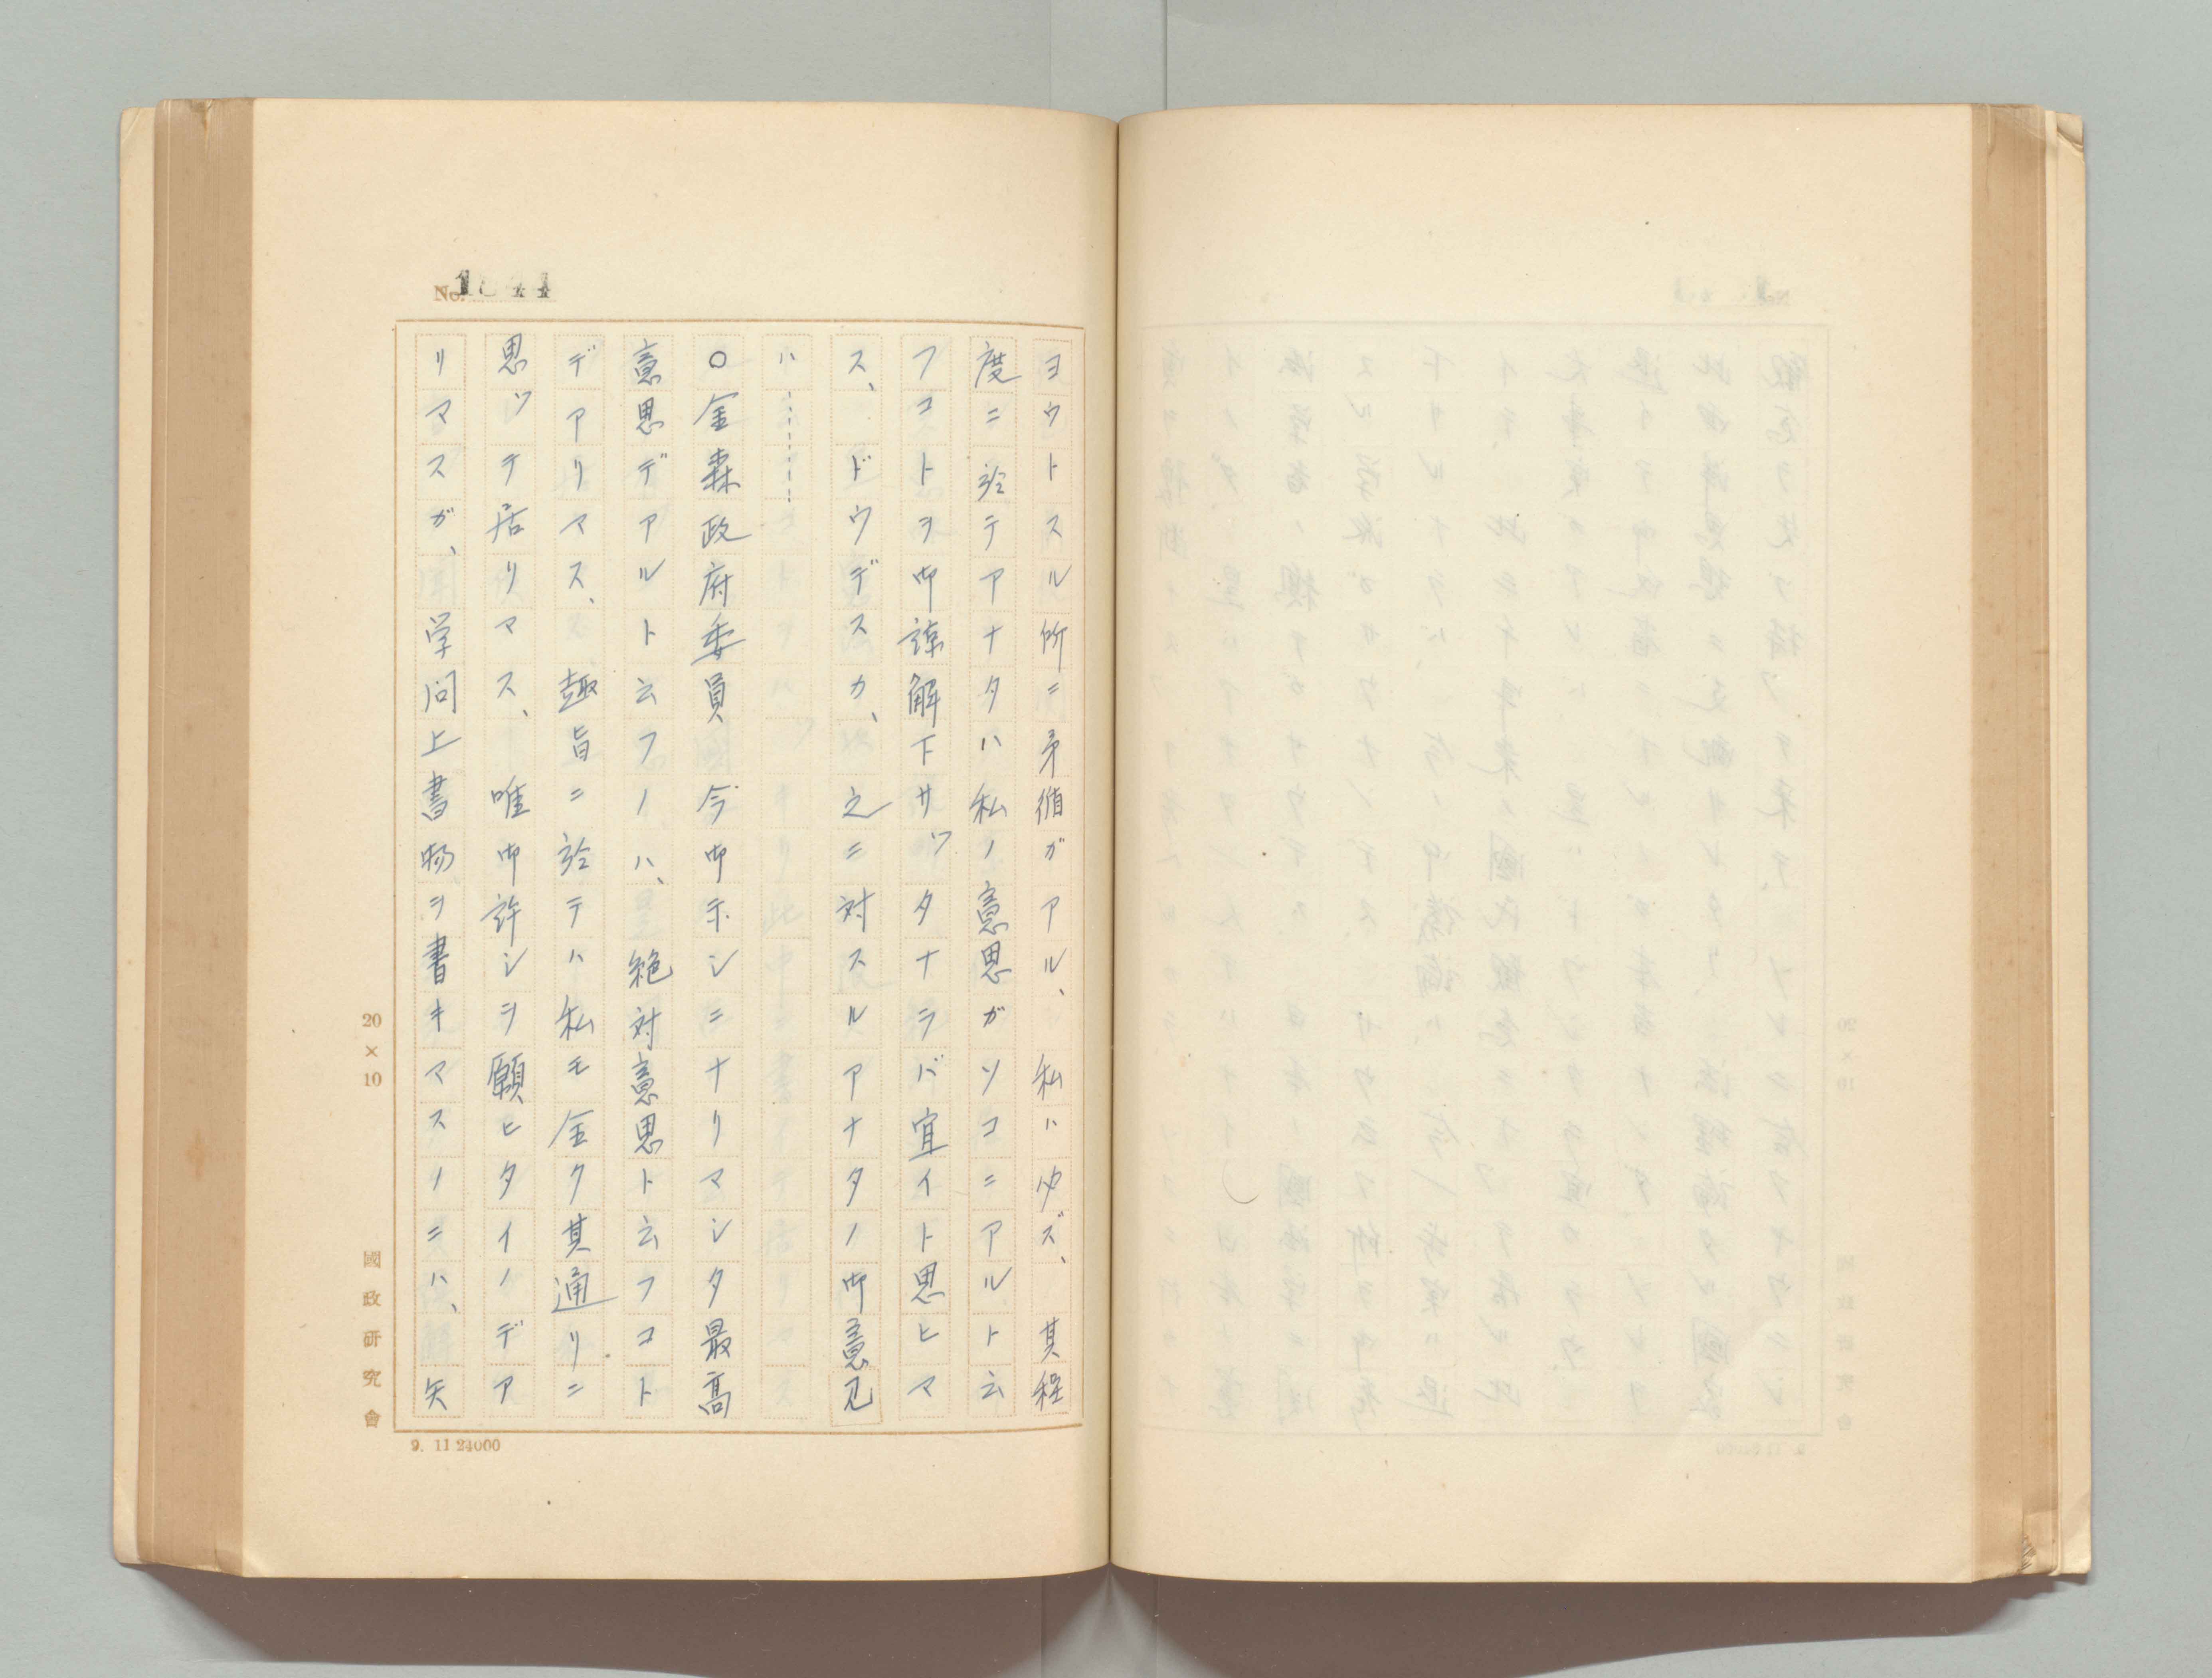 No. 1844
ヨウトスル所ニ矛循ガアル、私ハ必ズ、其程
度ニ於テアナタハ私ノ意思ガソコニアルト云
フコトヲ御諒解下サッタナラバ宜イト思ヒマ
ス、ドウデスカ、之ニ対スルアナタノ御意見
ハ------
○金森政府委員 今御示シニナリマシタ最高
意思デアルト云フノハ、絶対意思ト云フコト
デアリマス、趣旨ニ於テハ私モ全ク其通リニ
思ッテ居リマス、唯御許シヲ願ヒタイノデア
リマスガ、学問上書物ヲ書キマスノニハ、矢
20×10
國政研究會
9. 11 24000